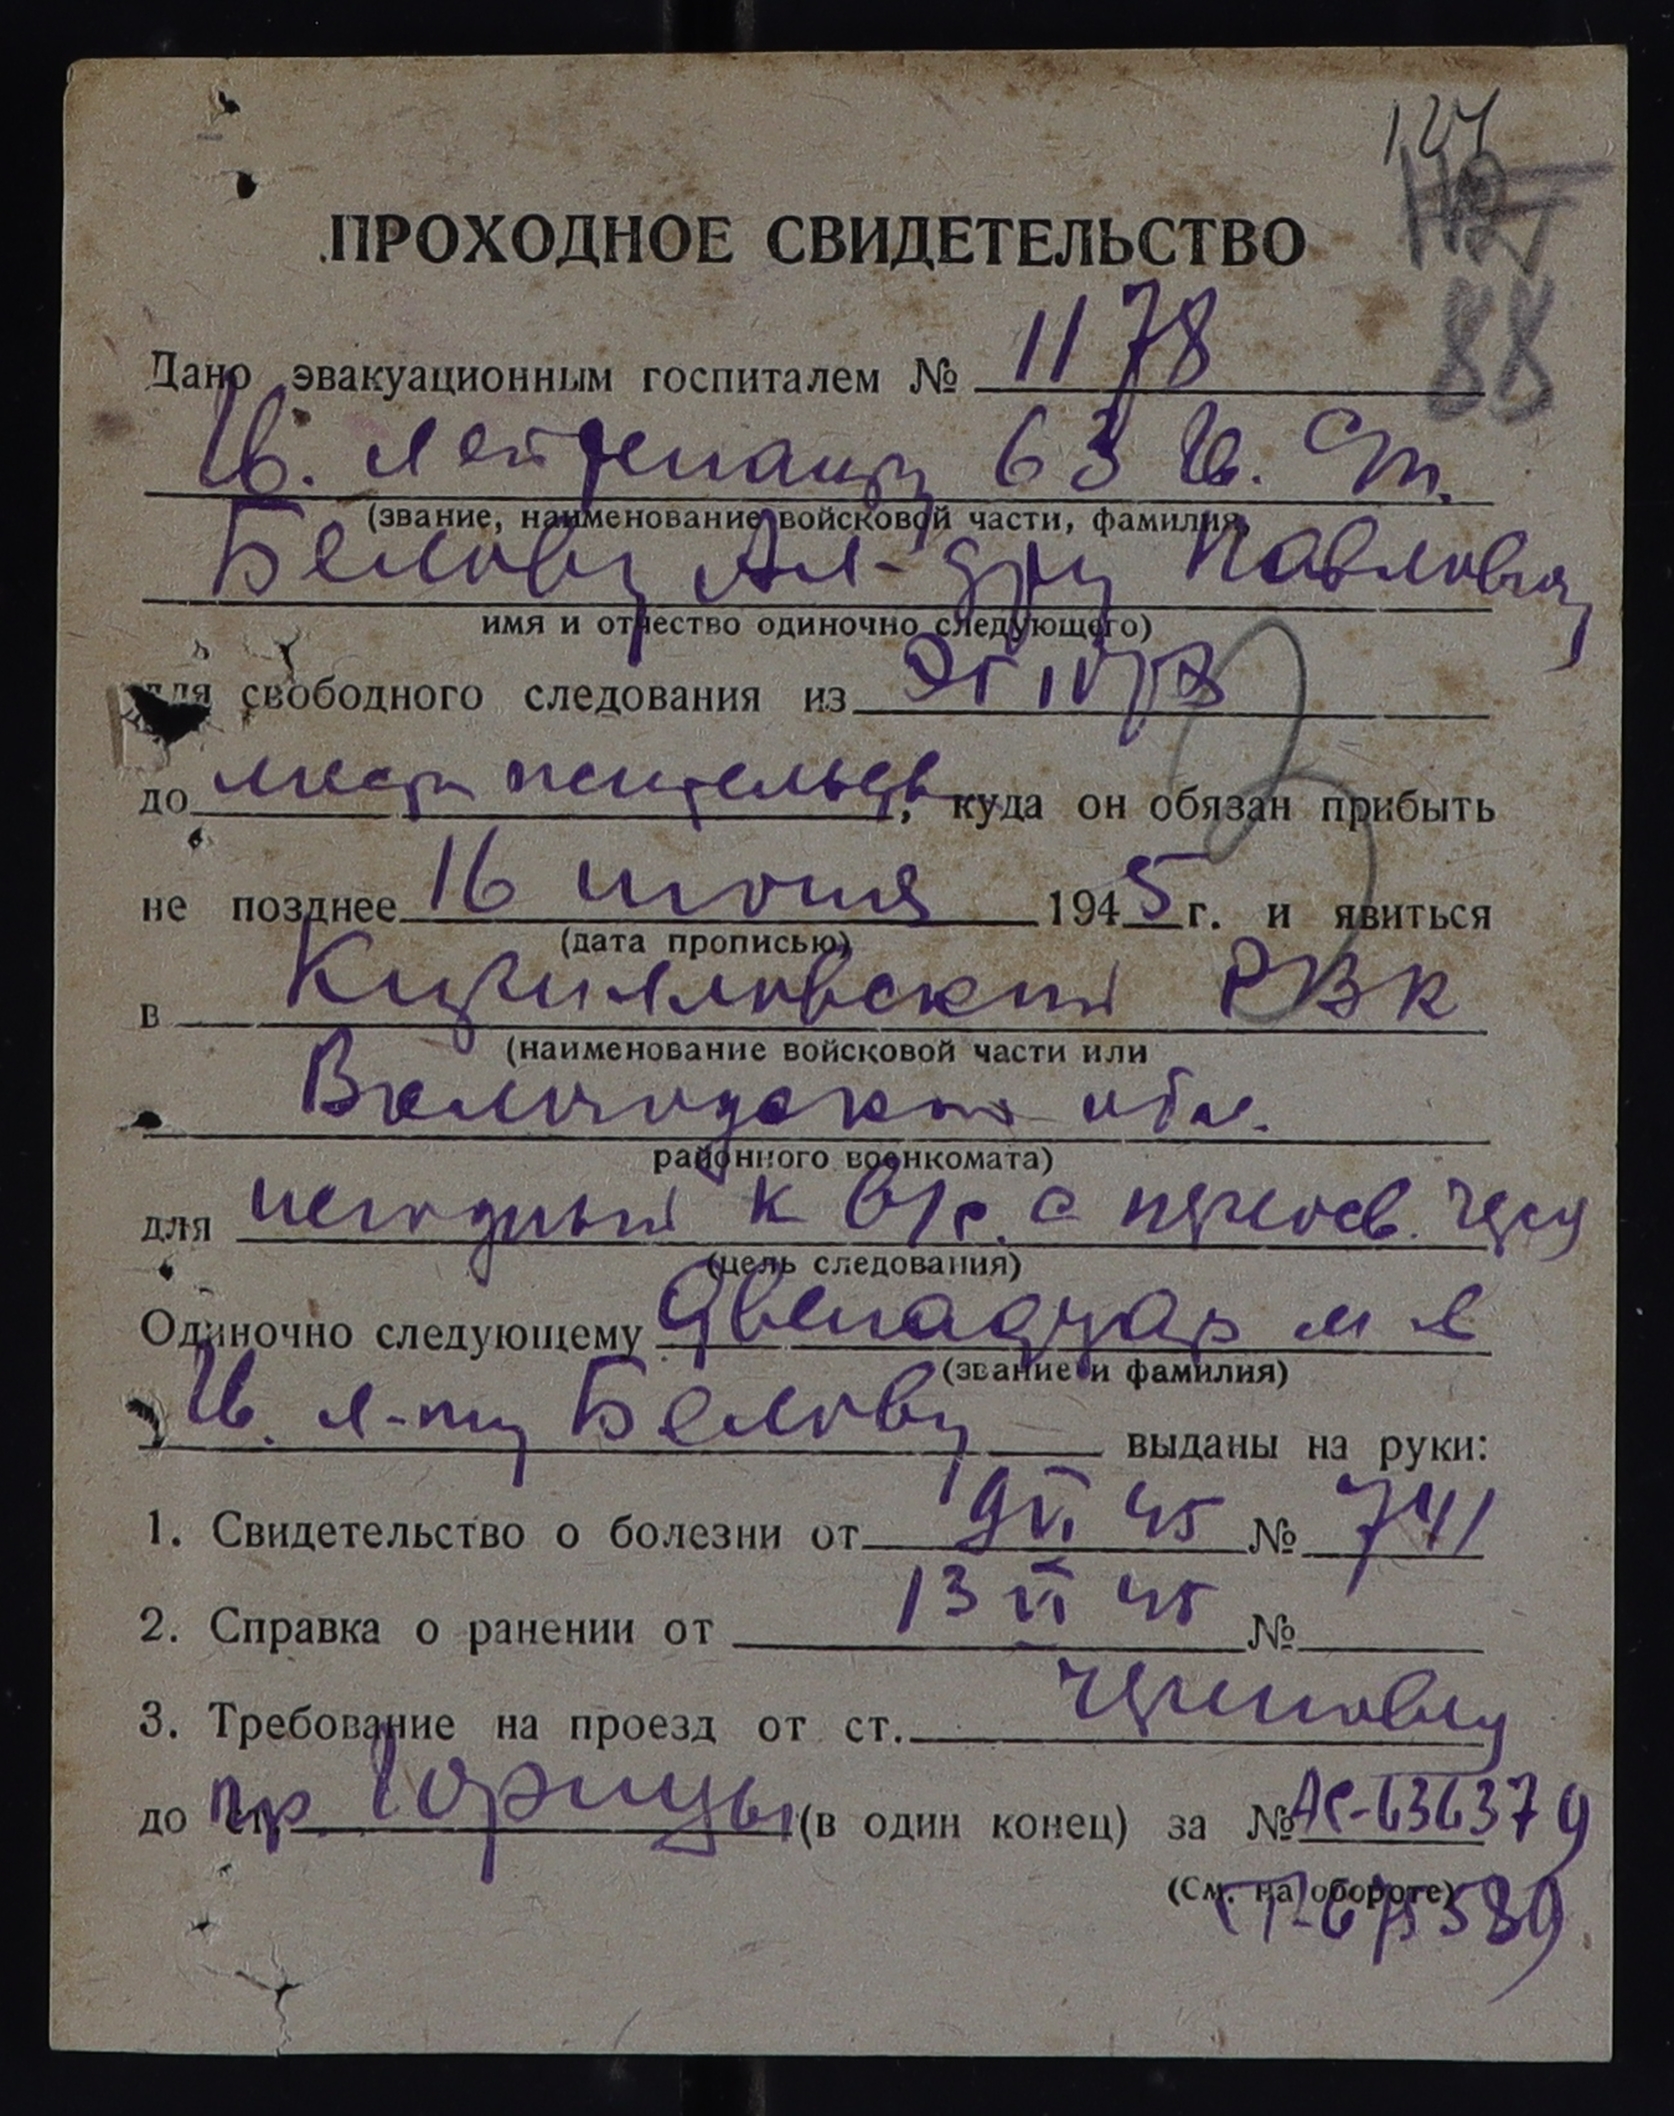 124
88
ПРОХОДНОЕ СВИДЕТЕЛЬСТВО
Дано эвакуационным госпиталем № 1178
Гв. лейтенанту 63 Гв. Сп.
(звание, наименование войсковой части, фамилия,
Белову Ал-дру Павловичу
имя и отчество одиночно следующего)
для свободного следования из ЭГ 1178
до места жительства, куда он обязан прибыть
не позднее 16 июня 1945 г. и явиться
(дата прописью)
в Кирилловский РВК
(наименование войсковой части или
Вологодской обл.
районного военкомата)
для негодный к в/с. с переосв. через
(цель следования)
Одиночно следующему двенадцать м-в
(звание и фамилия)
Гв. л-ту Белову выданы на руки:
1. Свидетельство о болезни от 9 VI 45 № 741
2. Справка о ранении от 13 VI 45 №
3. Требование на проезд от ст.
до пр. (в один конец) за № АС-636379
(См. на обороте)